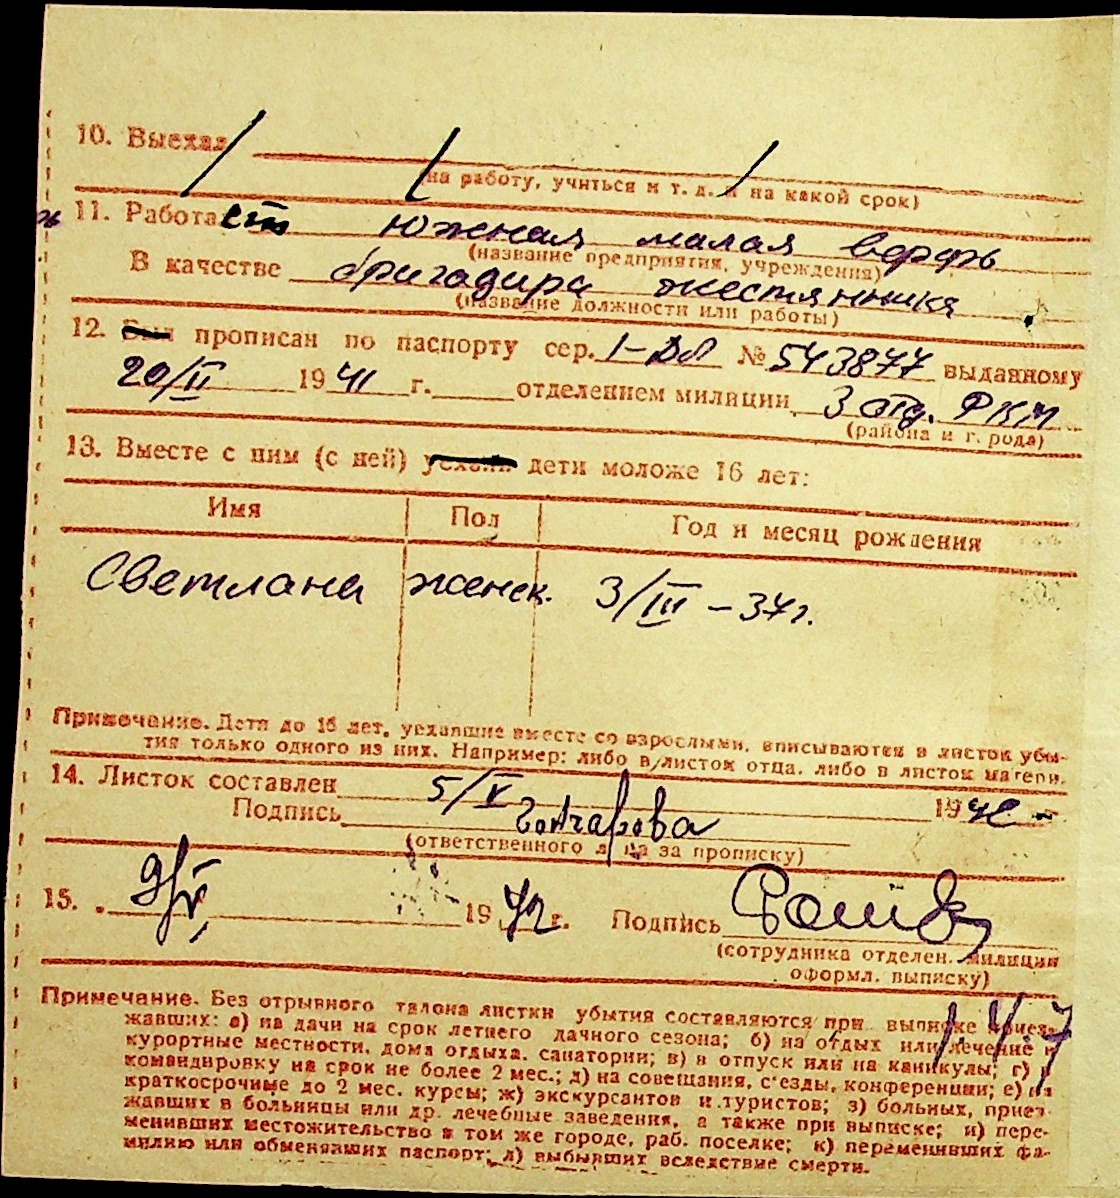 10. Выехал
(на работу, учиться и т. д. и на какой срок)
11. Работает Южная малая верфь
(название предприятия, учреждения)
В качестве бригадира жестянщика
(название должности или работы)
12. Был прописан по паспорту сер. № 543877 выданному
20/II 1941 г. отделением милиции 3 отд. РКМ
(района и города)
13. Вместе с ним (с ней) уехали дети моложе 16 лет:
Имя Пол Год и месяц рождения
Светлана женск. 3/III – 37 г.
Примечание. Дети до 16 лет, уехавшие вместе со взрослыми, вписываются в листок убы-
тия только одного из них. Например: либо в листок отца, либо в листок матери.
14. Листок составлен 5/V 1942
Подпись Гончарова
(ответственного лица за прописку)
15. 9/V 1942 г. Подпись
(сотрудника отделен. милиции
оформл. выписку)
Примечание. Без отрывного талона листки убытия составляются при выписке приез-
жавших: а) на дачи на срок летнего дачного сезона; б) на отдых или лечение в
курортные местности, дома отдыха, санатории; в) в отпуск или на каникулы; г) в
командировку на срок не более 2 мес.; д) на совещания, с'езды, конференции; е) на
краткосрочные до 2 мес. курсы; ж) экскурсантов и туристов; з) больных, приез-
жавших в больницы или др. лечебные заведения, а также при выписке; и) пере-
менивших местожительство в том же городе, раб. поселке; к) переменивших фа-
милию или обменявших паспорт; л) выбывших вследствие смерти.